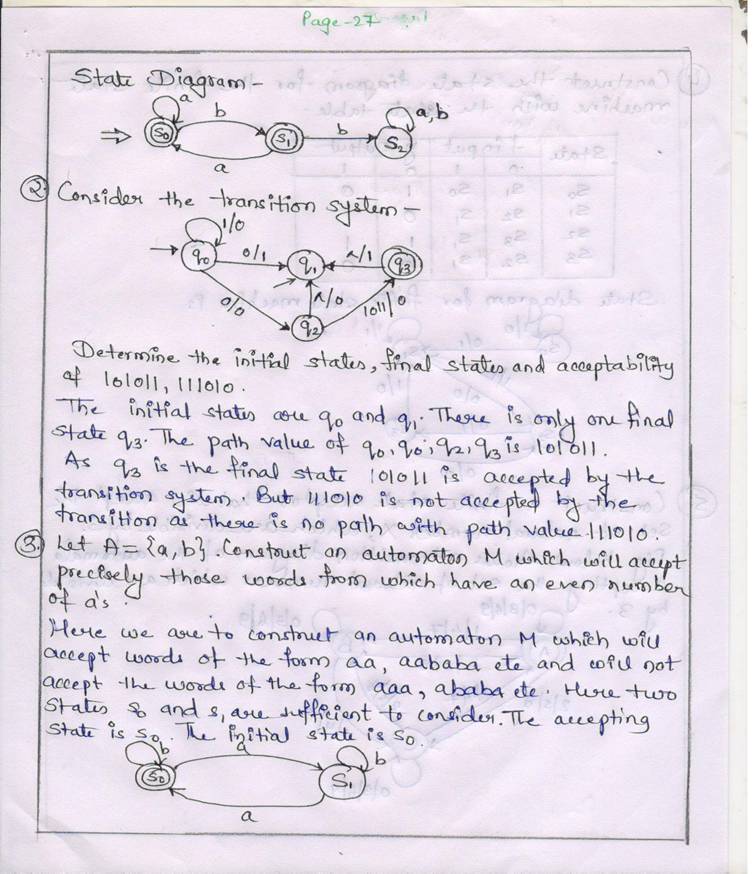 Page-27
State Diagram-
a
b
a,b
S0 S1 b S2
a
2. Consider the transition system-
1/0
q0 0/1 q1 ʌ/1 q3
0/0 ʌ/0 1011/0
q2
Determine the initial states, final states and acceptability
of 101011, 111010.
The initial states are q0 and q1. There is only one final
state q3. The path value of q0, q0, q2, q3 is 101011.
As q3 is the final state 101011 is accepted by the
transition system. But 111010 is not accepted by the
transition as there is no path with path value 111010.
3. Let A = {a,b}. Construct an automaton M which will accept
precisely those words from which have an even number
of a's.
Here we are to construct an automaton M which will
accept words of the form aa, aababa etc and will not
accept the words of the form aaa, ababa etc. Here two
States s0 and s1 are sufficient to consider. The accepting
State is S0. The initial state is S0.
b a b
S0 S1
a